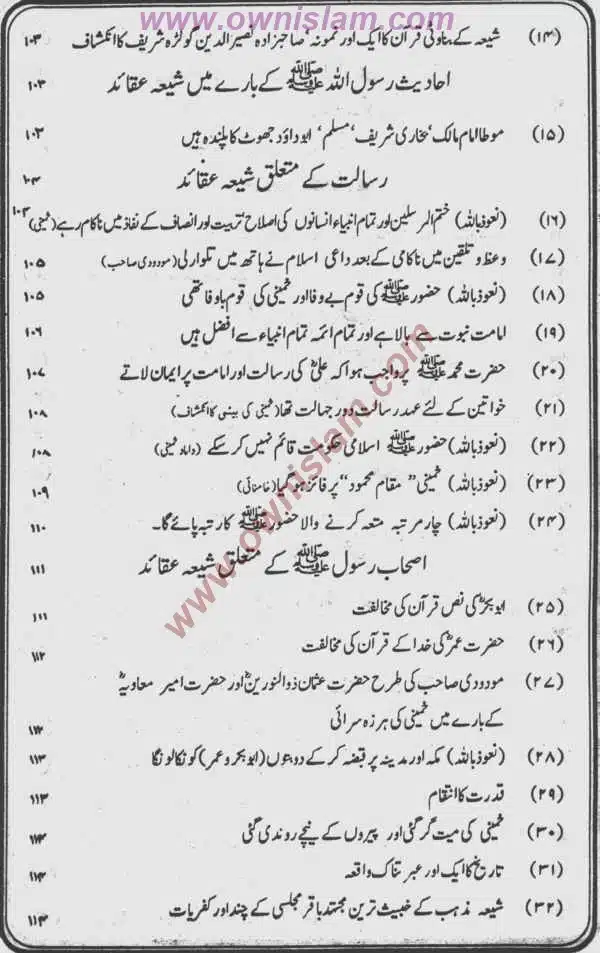 www.ownislam.com
(۱۴) شیعہ کے بناوٹی قرآن کا ایک اور نمونہ، صاحبزادہ نصیر الدین گولڑہ شریف کا انکشاف ۱۰۳
احادیث رسول اللہ ﷺ کے بارے میں شیعہ عقائد ۱۰۳
(۱۵) موطا امام مالک، بخاری شریف، مسلم، ابو داؤد جھوٹ کا پلندہ ہیں ۱۰۳
رسالت کے متعلق شیعہ عقائد ۱۰۴
(۱۶) (نعوذ باللہ) ختم المرسلین اور تمام انبیاء انسانوں کی اصلاح تربیت اور انصاف کے نفاذ میں ناکام رہے (خمینی) ۱۰۴
(۱۷) وعظ و تلقین میں ناکامی کے بعد داعی اسلام نے ہاتھ میں تلوار لی (مودودی صاحب) ۱۰۵
(۱۸) (نعوذ باللہ) حضور ﷺ کی قوم بے وفا اور خمینی کی قوم باوفا تھی ۱۰۵
(۱۹) امامت نبوت سے بالا ہے اور تمام ائمہ تمام انبیاء سے افضل ہیں ۱۰۶
(۲۰) حضرت محمد ﷺ پر واجب ہوا کہ علیؓ کی رسالت اور امامت پر ایمان لاتے ۱۰۷
(۲۱) خواتین کے لئے عہد رسالت دور جہالت تھا (خمینی کی بیٹی کا انکشاف) ۱۰۸
(۲۲) (نعوذ باللہ) حضور ﷺ اسلامی حکومت قائم نہیں کر سکے (داماد خمینی) ۱۰۸
(۲۳) (نعوذ باللہ) خمینی "مقام محمود" پر فائز ہو گیا (خامنائی) ۱۰۹
(۲۴) (نعوذ باللہ) چار مرتبہ متعہ کرنے والا حضور ﷺ کا رتبہ پائے گا۔ ۱۱۰
اصحاب رسول ﷺ کے متعلق شیعہ عقائد ۱۱۱
(۲۵) ابو بکرؓ کی نص قرآن کی مخالفت ۱۱۱
(۲۶) حضرت عمرؓ کی خدا کے قرآن کی مخالفت ۱۱۲
(۲۷) مودودی صاحب کی طرح حضرت عثمان ذوالنورینؓ اور حضرت امیر معاویہؓ
کے بارے میں خمینی کی ہرزہ سرائی ۱۱۲
(۲۸) (نعوذ باللہ) مکہ اور مدینہ پر قبضہ کر کے دو بتوں (ابو بکر و عمر) کو نکالونگا ۱۱۳
(۲۹) قدرت کا انتقام ۱۱۳
(۳۰) خمینی کی میت گر گئی اور پیروں کے نیچے روندی گئی ۱۱۴
(۳۱) تاریخ کا ایک اور عبرتناک واقعہ ۱۱۴
(۳۲) شیعہ مذہب کے خبیث ترین مجتہد باقر مجلسی کے چند اور کفریات ۱۱۴
www.ownislam.com